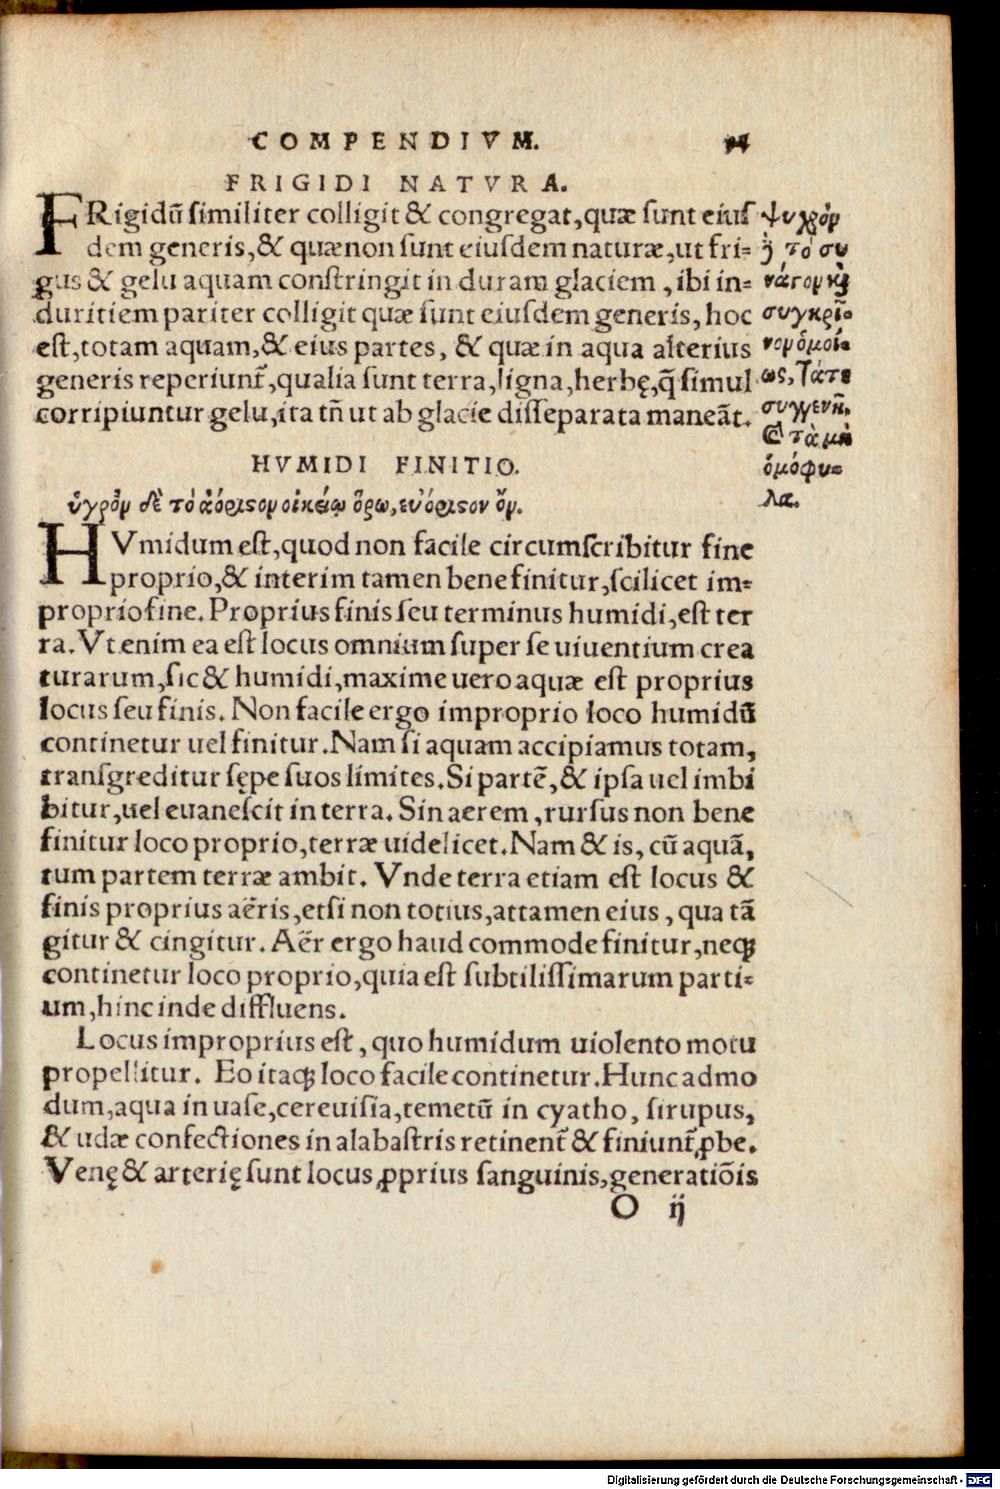 COMPENDIVM.
FRIGIDI NATVRA.
FRigidū similiter colligit & congregat, quæ sunt eius
dem generis, & quæ non sunt eiusdem naturæ, ut fri-
gus & gelu aquam constringit in duram glaciem, ibi in-
duritiem pariter colligit quæ sunt eiusdem generis, hoc
est, totam aquam, & eius partes, & quæ in aqua alterius
generis reperiunt᷑, qualia sunt terra, ligna, herbę, q̃ simul
corripiuntur gelu, ita tñ ut ab glacie disseparata maneãt.
ψυχρὸν
δ τὸ συ
νάγον κὶ
συγκρῖ-
νον ὁμοί-
ως, τάτε
συγγενῆ,
καὶ τὰ μὴ
ὁμόφυ-
λα.
HVMIDI FINITIO.
ὑγρὸν δὲ τὸ ἀόριστον οἰκείῳ ὅρῳ, εὐόριστον ὄν.
HVmidum est, quod non facile circumscribitur fine
proprio, & interim tamen bene finitur, scilicet im-
proprio fine. Proprius finis seu terminus humidi, est ter
ra. Vt enim ea est locus omnium super se uiuentium crea
turarum, sic & humidi, maxime uero aquæ est proprius
locus seu finis. Non facile ergo improprio loco humidū
continetur uel finitur. Nam si aquam accipiamus totam,
transgreditur sępe suos limites. Si partē, & ipsa uel imbi
bitur, uel euanescit in terra. Sin aerem, rursus non bene
finitur loco proprio, terræ uidelicet. Nam & is, cū aquã,
tum partem terræ ambit. Vnde terra etiam est locus &
finis proprius aëris, etsi non totius, attamen eius, qua tã
gitur & cingitur. Aër ergo haud commode finitur, neqꝫ
continetur loco proprio, quia est subtilissimarum parti-
um, hinc inde diffluens.
Locus improprius est, quo humidum uiolento motu
propellitur. Eo itaqꝫ loco facile continetur. Hunc admo
dum, aqua in uase, cereuisia, temetū in cyatho, sirupus,
& udæ confectiones in alabastris retinent᷑ & finiunt᷑ ꝓbe.
Venę & arterię sunt locus ꝓprius sanguinis, generatiõis
O ij
Digitalisierung gefördert durch die Deutsche Forschungsgemeinschaft - DFG